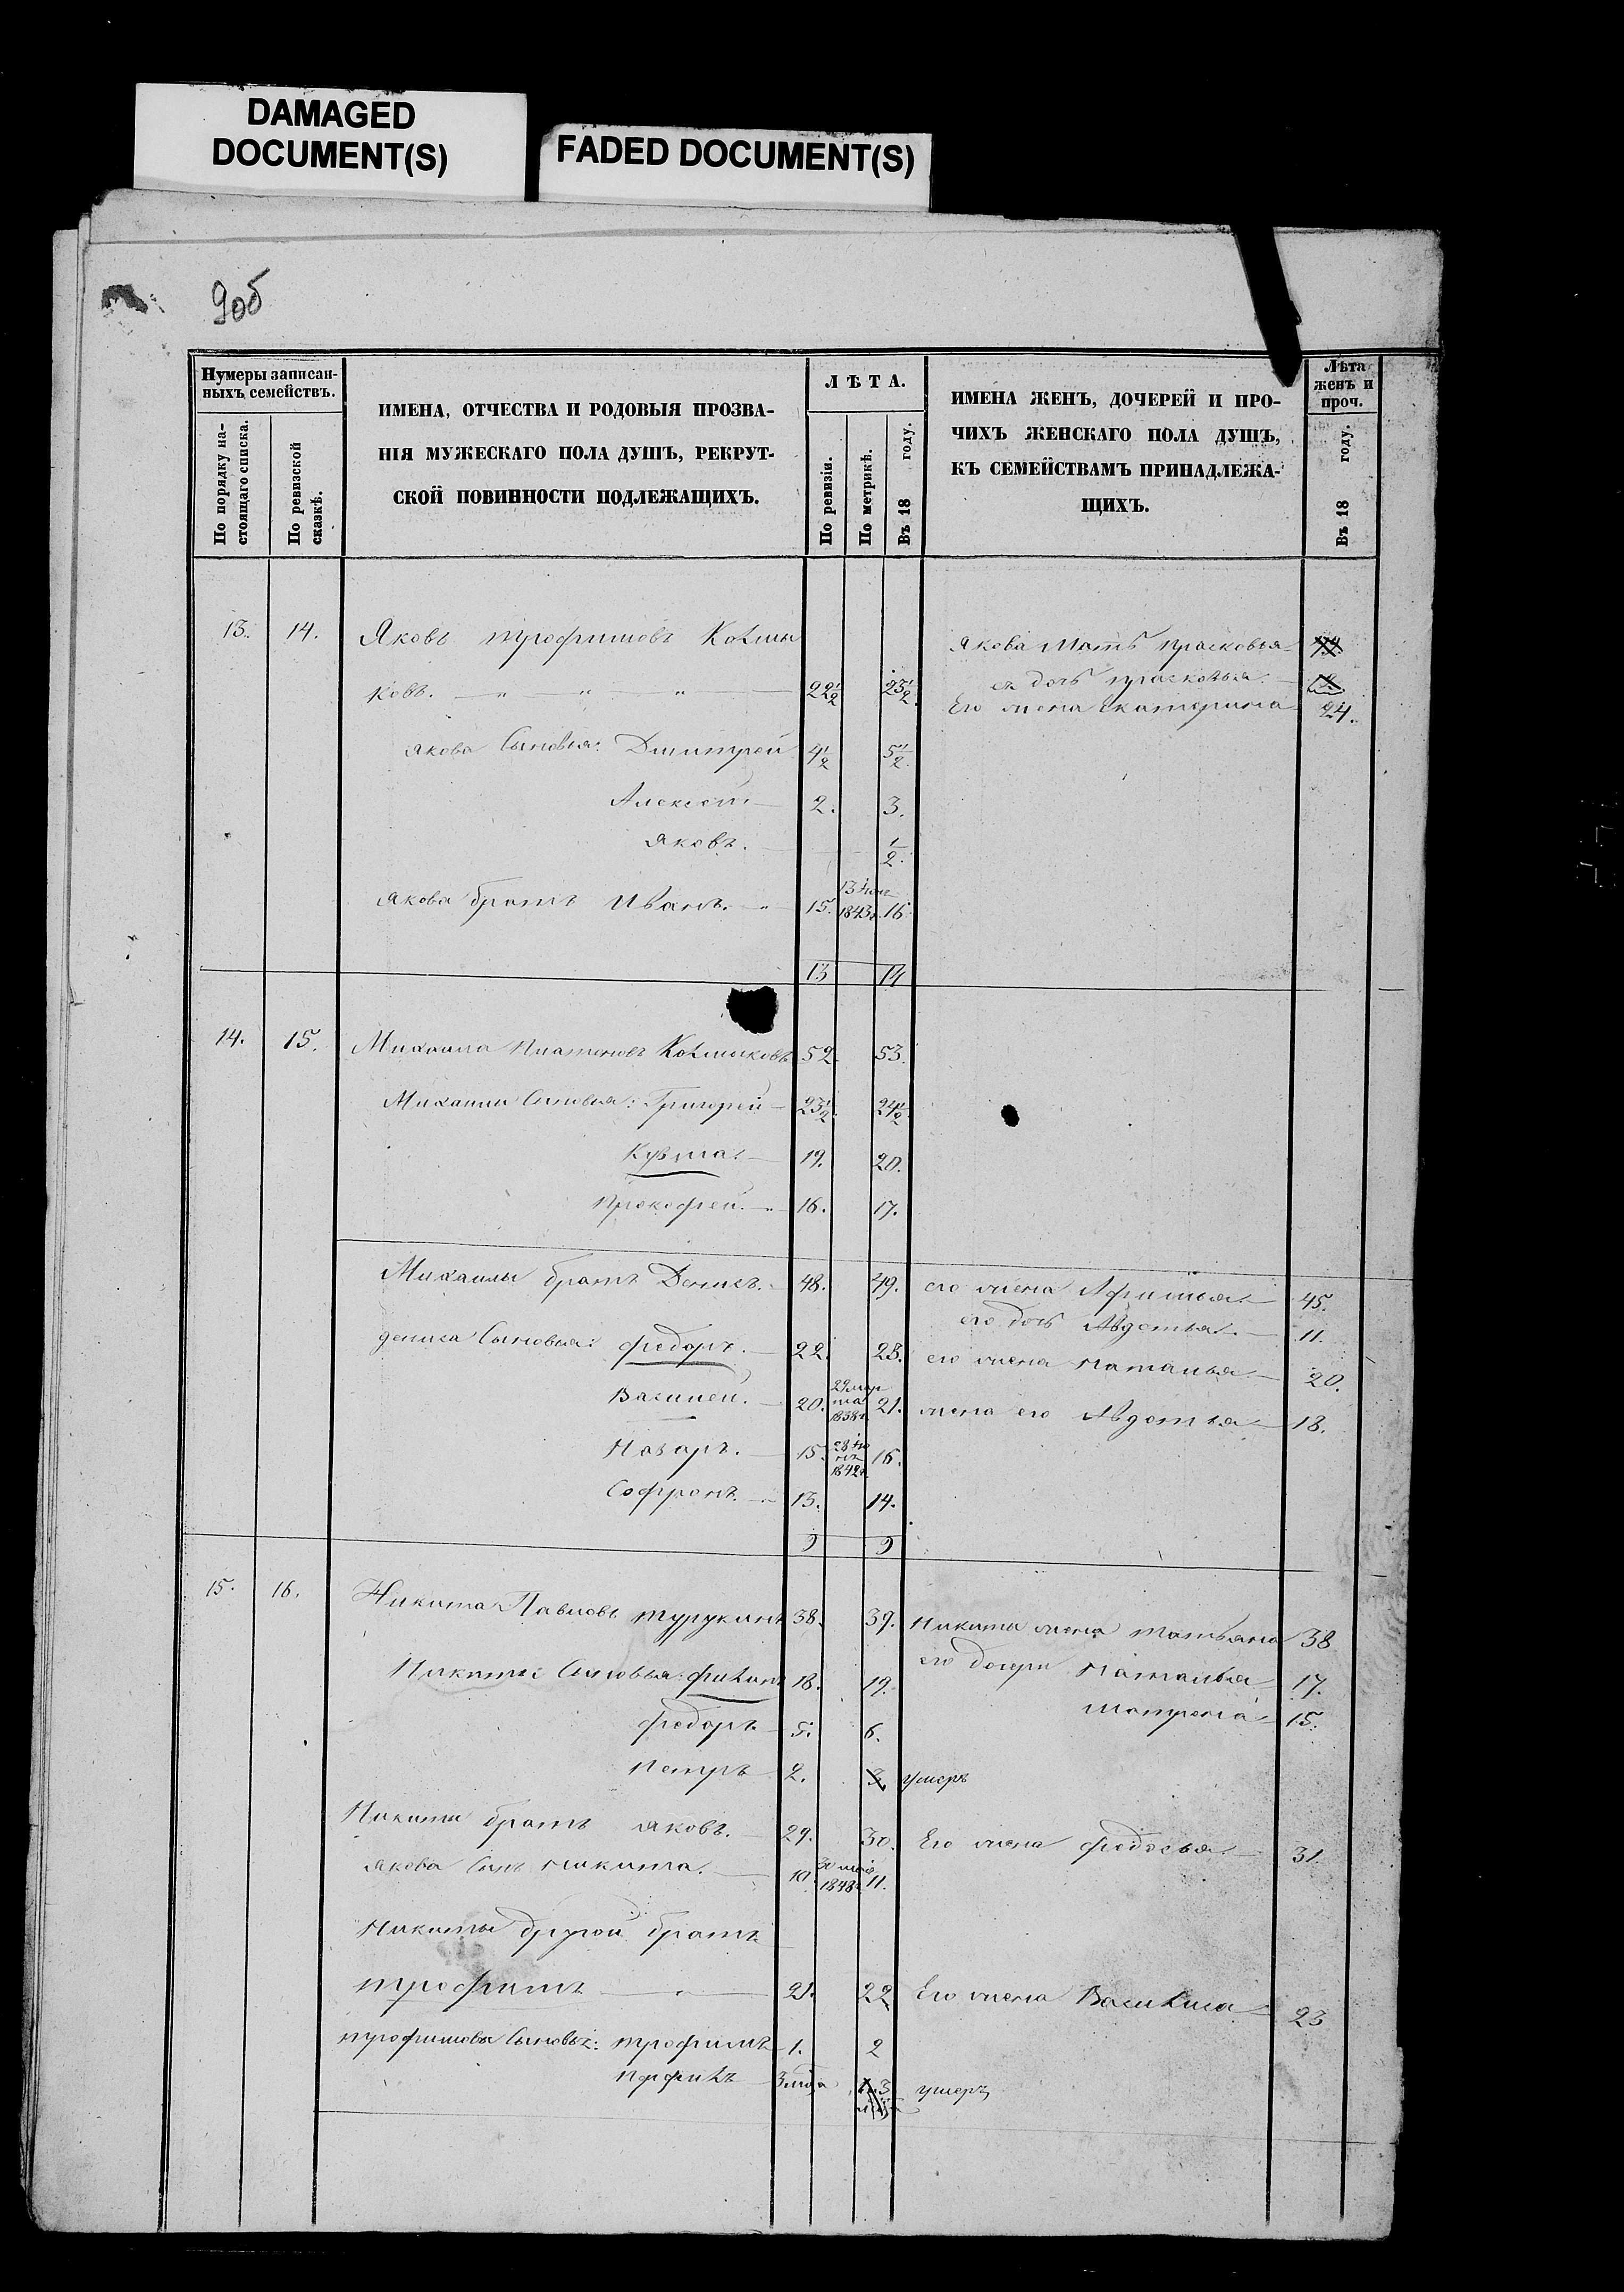 DAMAGED
DOCUMENT(S)
FADED DOCUMENT(S)
9об
Нумеры записан-
ныхъ семействъ.
По порядку на-
стоящаго списка.
По ревизской
сказкѣ.
ИМЕНА, ОТЧЕСТВА И РОДОВЫЯ ПРОЗВА-
НІЯ МУЖЕСКАГО ПОЛА ДУШЪ, РЕКРУТ-
СКОЙ ПОВИННОСТИ ПОДЛЕЖАЩИХЪ.
ЛѢТА.
По ревизіи.
По метрикѣ.
Въ 18 году.
ИМЕНА ЖЕНЪ, ДОЧЕРЕЙ И ПРО-
ЧИХЪ ЖЕНСКАГО ПОЛА ДУШЪ,
КЪ СЕМЕЙСТВАМЪ ПРИНАДЛЕЖА-
ЩИХЪ.
Лѣта
женъ и
проч.
Въ 18 году.
13. 14. Яковъ трофимовъ Колмы
Якова Мать прасковья
ковъ. 22 1/2 23 1/2.
ея дочь прасковья.
Его жена екатерина 24.
якова Сыновья: Дмитрей 4 1/2 5 1/2.
Алексей. 2. 3.
яковъ. 1/2.
якова братъ Иванъ. 15. 1843г. 16.
13 14
14. 15. Михаила Платоновъ Колмыковъ 52. 53.
Михаилы Сыновья: Григорей 23 1/2. 24 1/2.
Кузма. 19. 20.
прокофей. 16. 17.
Михаилы братъ Денисъ. 48. 49. его жена Афимья 45.
его дочь Авдотья. 11.
дениса Сыновья: федоръ. 22. 23. его жена наталья 20.
Василей. 20. 29 мар
та
1838г. 21. жена его Авдотья 18.
Назаръ. 15. 1842г. 16.
Софронъ. 13. 14.
9 9
15. 16. Никита Павловъ турукинъ 38. 39. Никиты жена татьяна 38
Никиты Сыновья: 18. 19. его дочери наталья 17.
матрена 15.
федоръ 5. 6.
петръ 2. 3. умеръ
Никиты братъ яковъ. 29. 30. Его жена федосья 31.
якова Сынъ никита. 10. 30 мая
1848г. 11.
Никиты другой братъ
трофимъ 21. 22 Его жена Василиса 23
трофимовы Сыновья: трофимъ 1. 2
умеръ